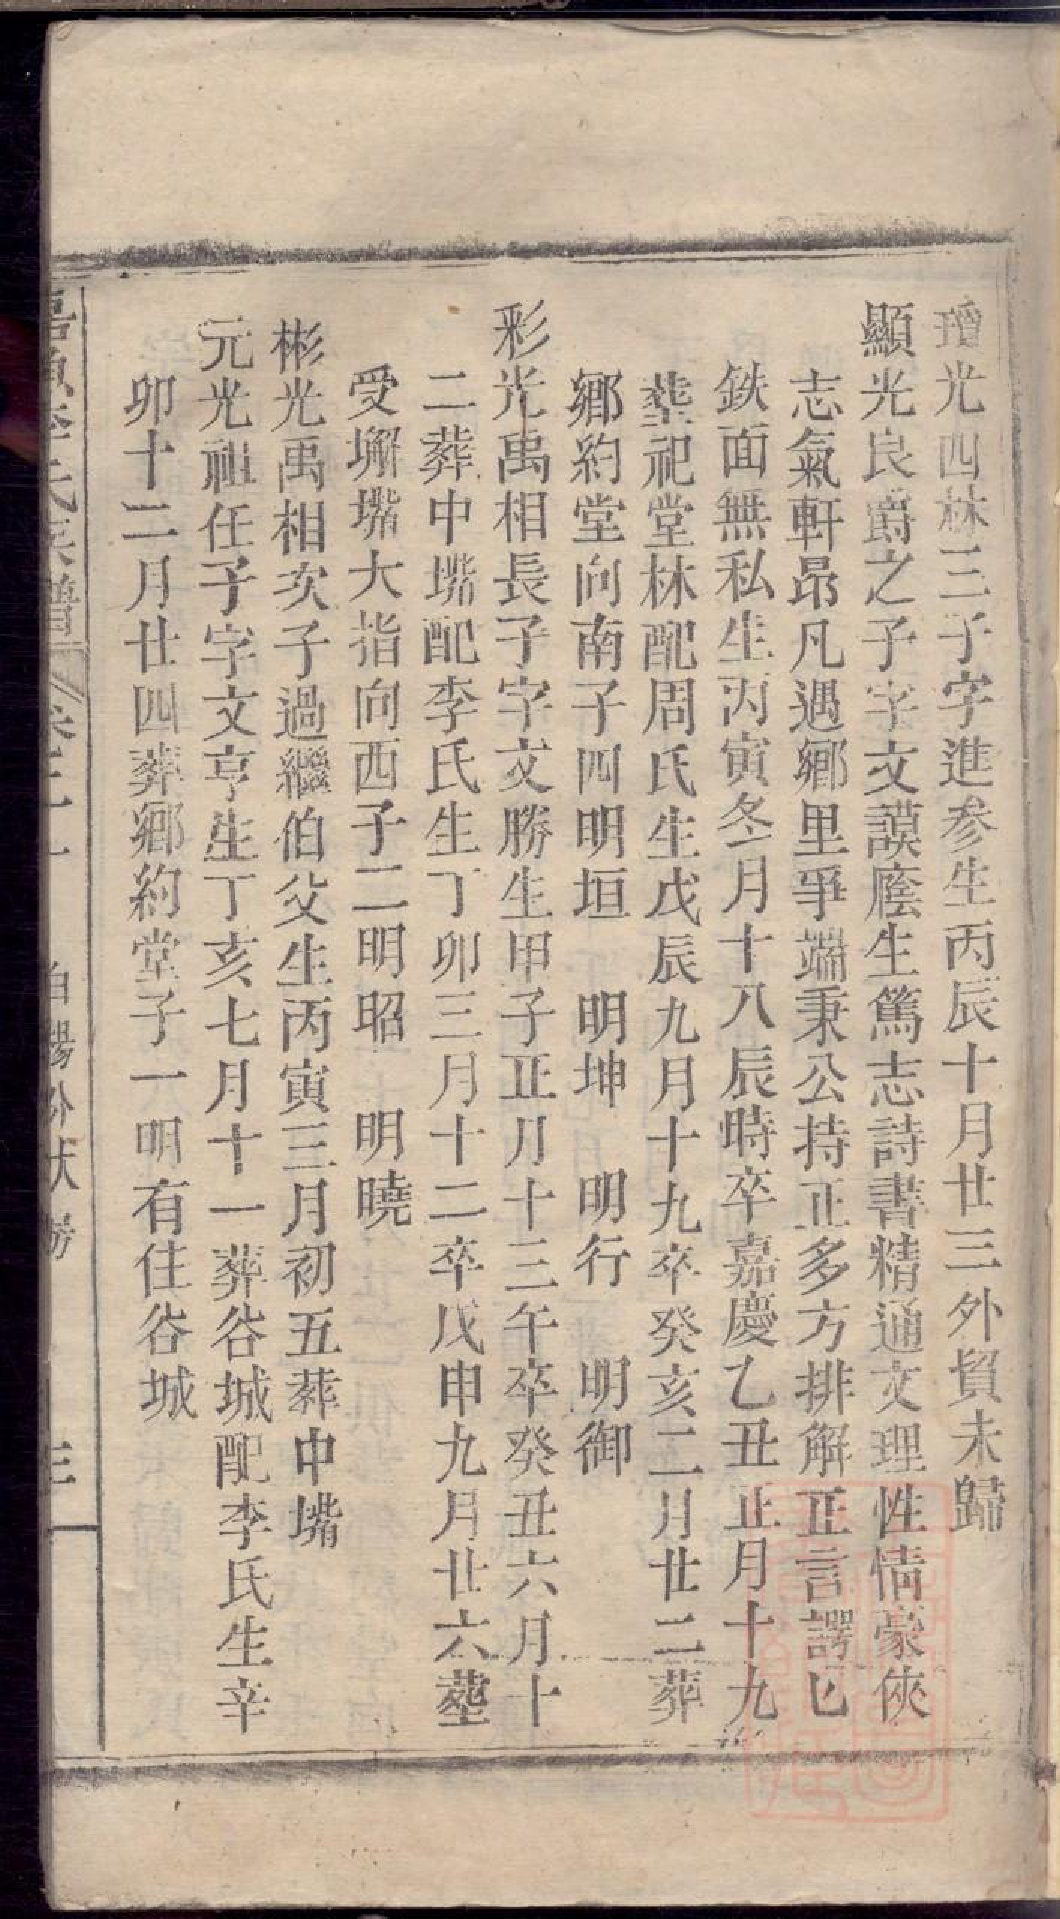 璔光四林三子字進參生丙辰十月廿三外貿未歸
顯光良爵之子字文謨廕生篤志詩書精通文理性情豪俠
志氣軒昂凡遇鄉里爭端秉公持正多方排解正言諤乜
鉄面無私生丙寅冬月十八辰時卒嘉慶乙丑正月十九
塟祀堂林配周氏生戊辰九月十九卒癸亥二月廿二葬
鄉約堂向南子四明垣 明坤 明行 明御
彩光禹相長子字文勝生甲子正月十三午卒癸丑六月十
二葬中嘴配李氏生丁卯三月十二卒戊申九月廿六塟
受壩嘴大指向西子二明昭 明曉
彬光禹相次子過繼伯父生丙寅三月初五葬中嘴
元光祖任子字文亨生丁亥七月十一葬谷城配李氏生辛
卯十二月廿四葬鄉約堂子一明有住谷城
李氏族譜 卷二十 白楊外伏房 三